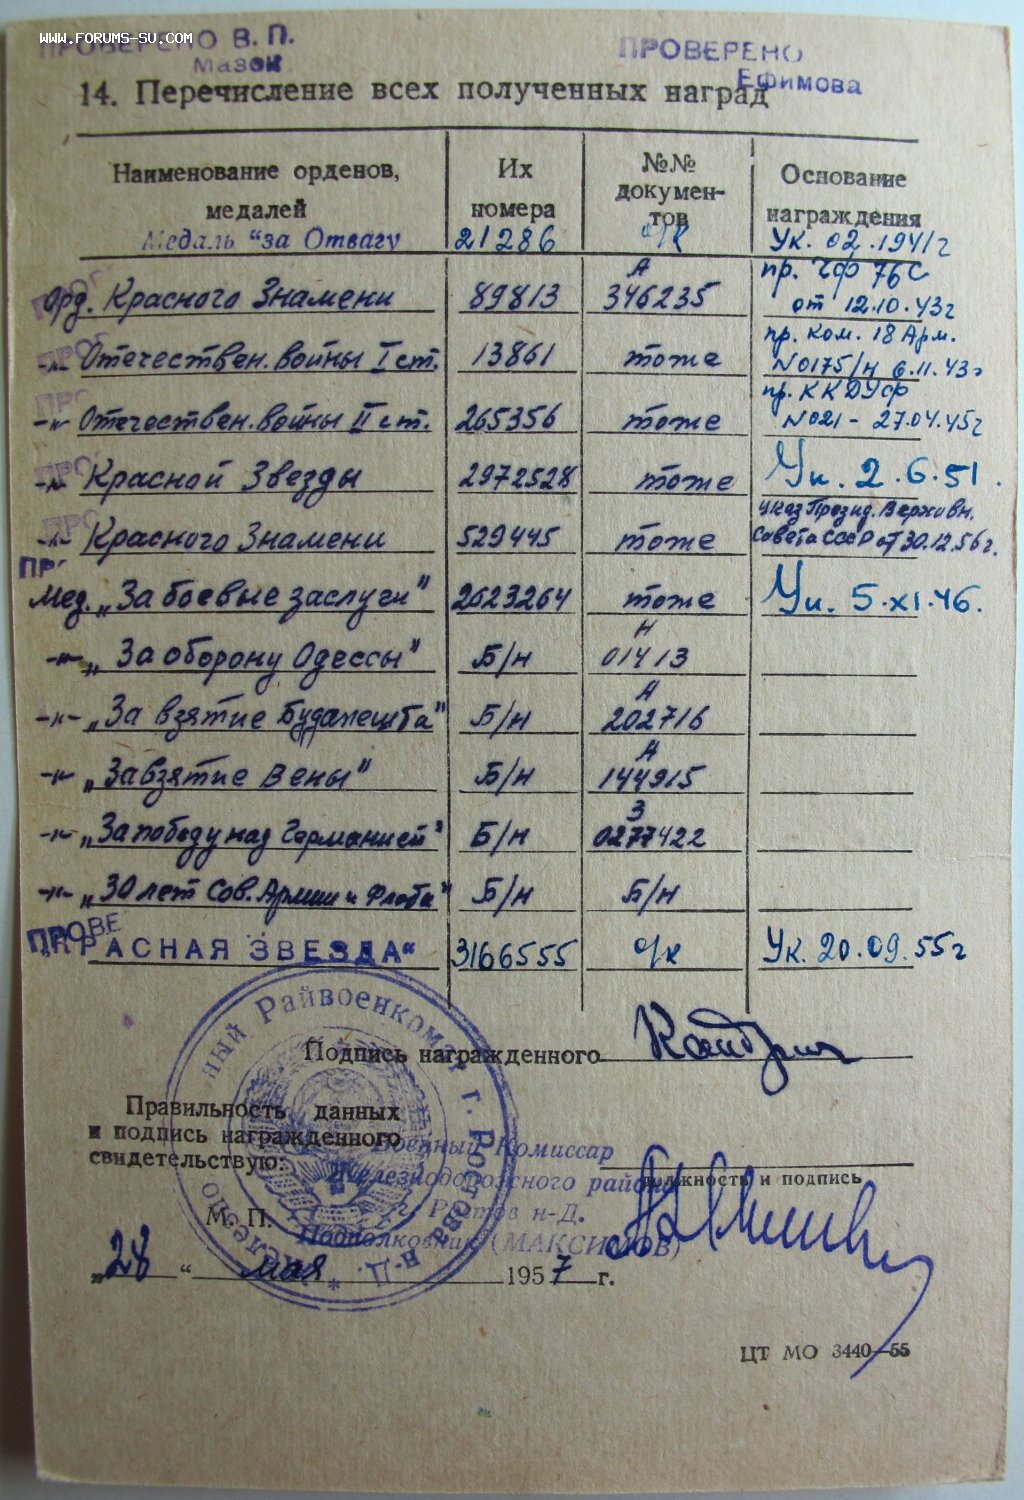 www.forums-su.com
ПРОВЕРЕНО В. П.
Мазок
ПРОВЕРЕНО
Ефимова
14. Перечисление всех полученных наград
Наименование орденов, медалей | Их номера | №№ документов | Основание награждения
Медаль "за Отвагу | 21286 | о/к | Ук. 02.1941г
Орд. Красного Знамени | 89813 | А 346235 | пр. ЧФ 76С от 12.10.43г
-"- Отечествен. войны I ст. | 13861 | тоже | пр. Ком. 18 Арм. N0175/н 6.11.43г
-"- Отечествен. войны II ст. | 265356 | тоже | пр. ККДУФ N021 - 27.04.45г
-"- Красной Звезды | 2972528 | тоже | Ук. 2.6.51.
-"- Красного Знамени | 529445 | тоже | указ Презид. Верховн. Совета СССР от 30.12.56г.
Мед. „За боевые заслуги" | 2623264 | тоже | Ук. 5.XI.46.
-"- „За оборону Одессы" | Б/н | Н 01413
-"- „За взятие Будапешта" | Б/н | А 202716
-"- „За взятие Вены" | Б/н | А 144915
-"- „За победу над Германией" | Б/н | З 0277422
-"- „30 лет Сов. Армии и Флота" | Б/н | Б/н
ПРОВЕ
"КРАСНАЯ ЗВЕЗДА" | 3166555 | о/к | Ук. 20.09.55г
Подпись награжденного
Правильность данных
и подпись награжденного
свидетельствую:
Военный Комиссар
Железнодорожного района
г. Ростов н-Д.
Подполковник (МАКСИМОВ)
должность и подпись
М. П.
„28" мая 1957 г.
Райвоенкомат г. Ростова н-Д.
ЦТ МО 3440—55